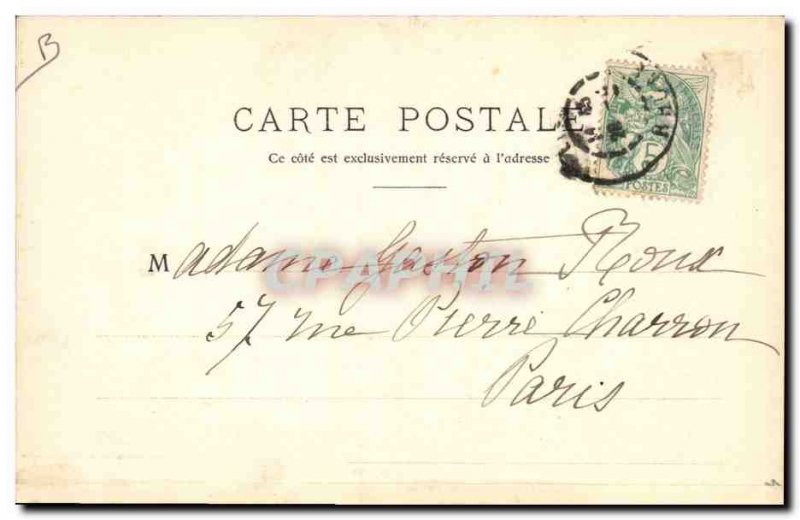 B
CARTE POSTALE
Ce côté est exclusivement réservé à l'adresse
5
POSTES
Madame Gaston Roux
57 rue Pierre Charron
Paris
CPAPHIL